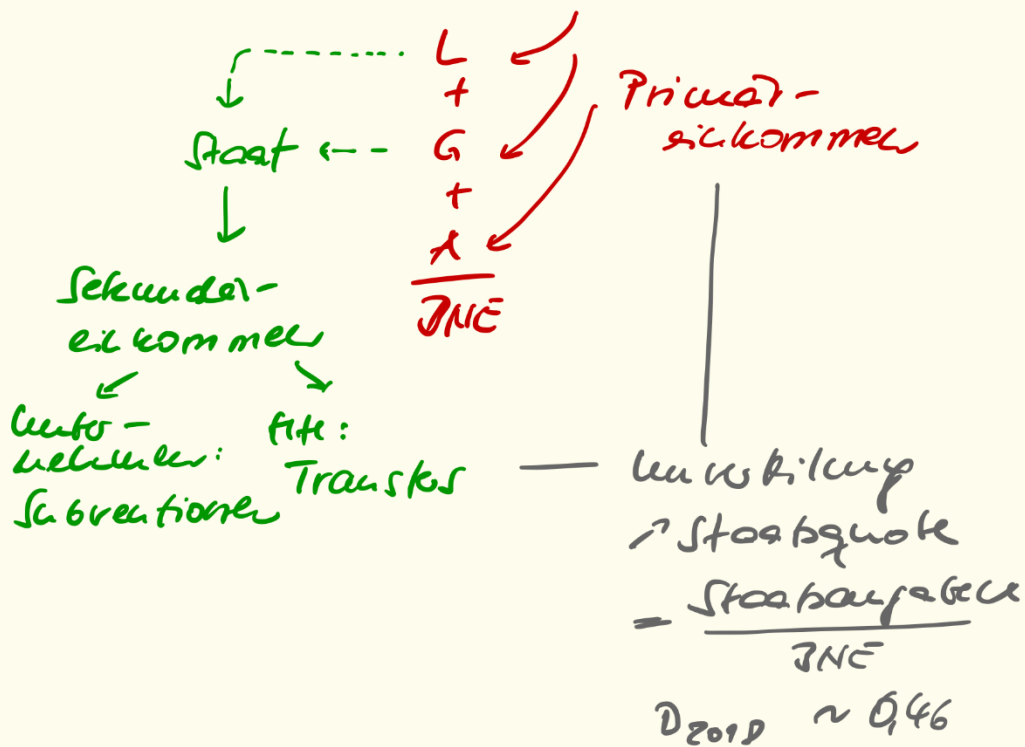 L
+
G
+
A
BNE
Primär-
einkommen
Staat
Sekundär-
einkommen
Unter-
nehmen:
Subventionen
HH:
Transfers
Umverteilung
↗ Staatsquote
= Staatsausgaben
BNE
D2018 ~ 0,46